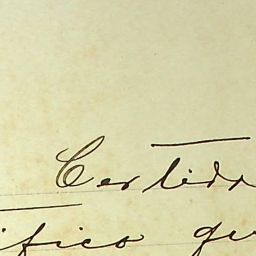 Certidã
ifico qu